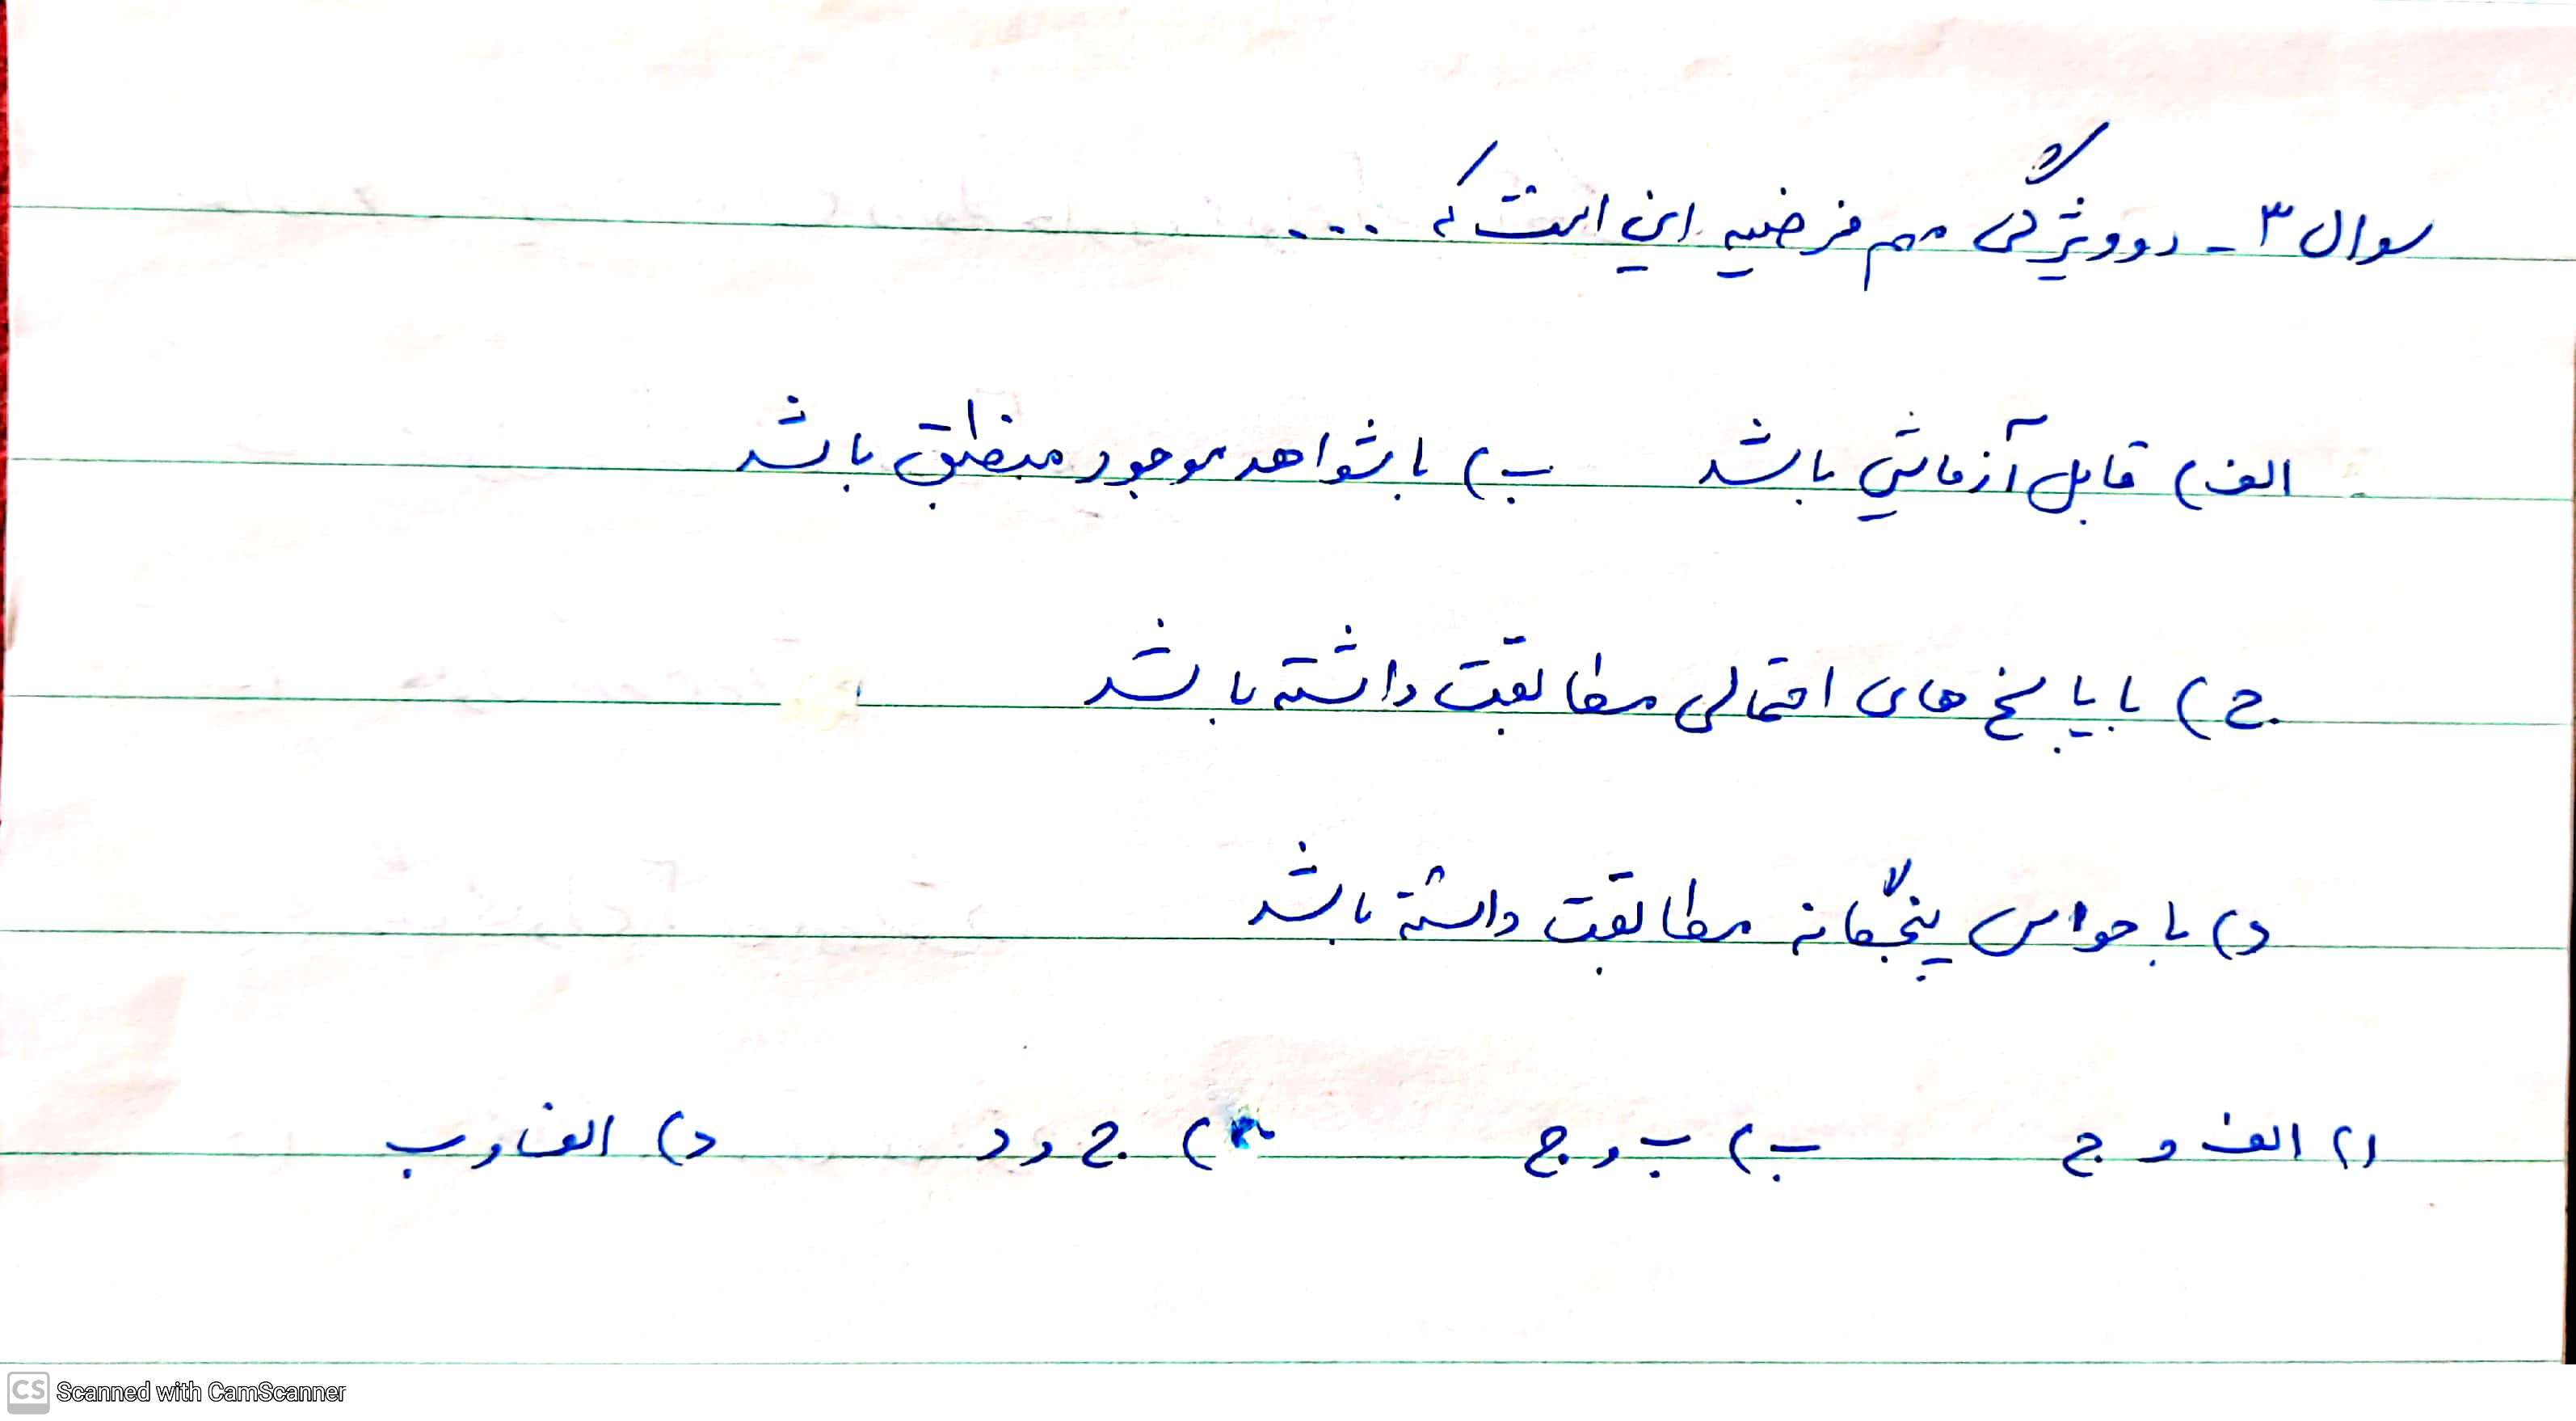 سوال ۳ - دو ویژگی مهم فرضیه این است که ...
الف) قابل آزمایش باشد ب) با شواهد موجود منطبق باشد
ج) با پاسخ های احتمالی مطابقت داشته باشد
د) با حواس پنجگانه مطابقت داشته باشد
۱) الف و ج ب) ب و ج ) ج و د د) الف و ب
CS Scanned with CamScanner